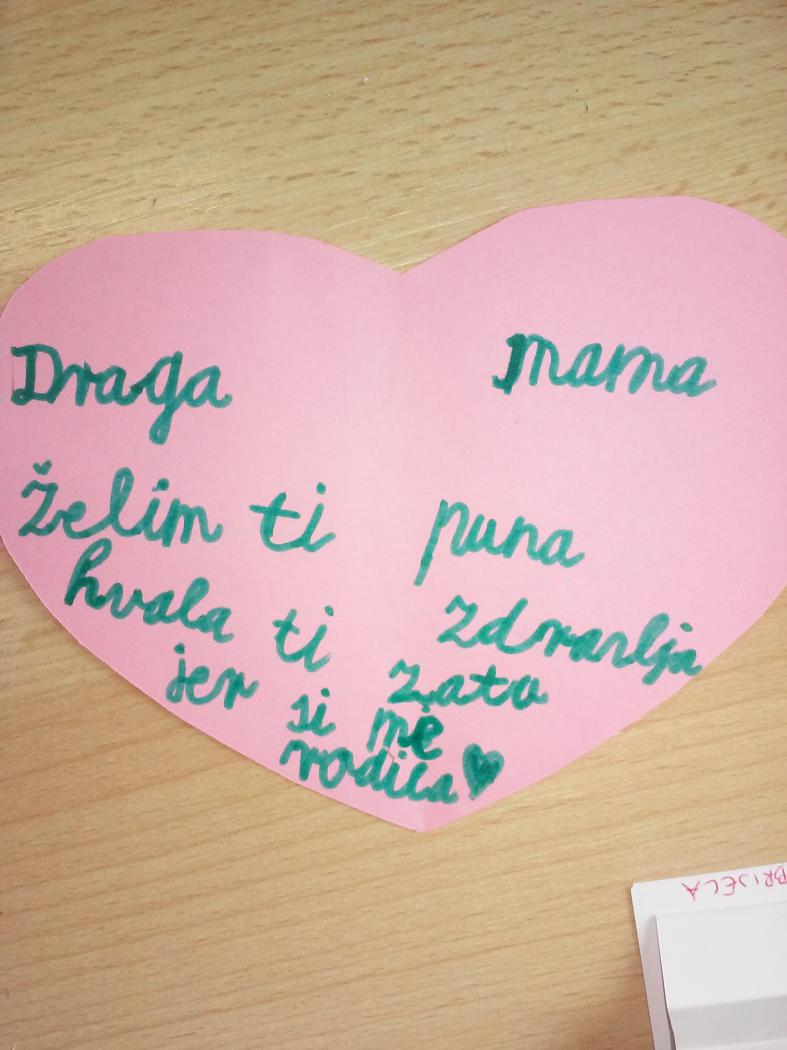 Draga mama
Želim ti puna
hvala ti zdravlja
jer zato
si me
rodila